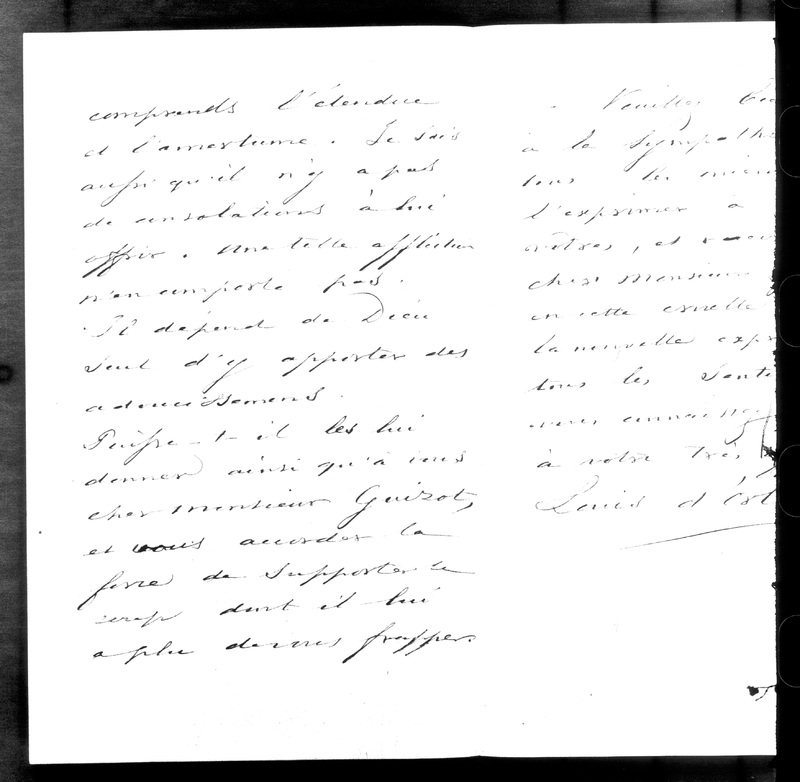 comprends l'étendue
et l'amertume. Je sais
aussi qu'il n'y a pas
de consolations à lui
offrir. Une telle affliction
n'en comporte pas.
Il dépend de Dieu
seul d'y apporter des
adoucissemens.
Puisse-t-il les lui
donner ainsi qu'à vous
cher monsieur Guizot,
et vous accorder la
force de supporter le
coup dont il lui
a plu de vous frapper.
Veuillez
à la sympathi
tous les miens
l'exprimer à
vôtres, et
cher monsieur
en cette cruelle
la nouvelle expr
tous les senti
vous
à votre très
Louis d'